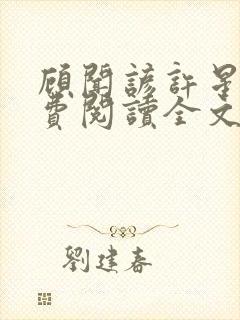 顧聞諺許星
費閱讀全文
劉建春